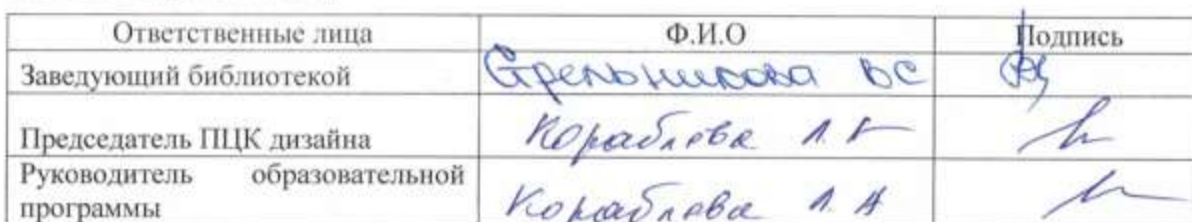 Ответственные лица Ф.И.О Подпись
Заведующий библиотекой Стрельникова ВС
Председатель ПЦК дизайна Кораблева Л.
Руководитель образовательной
программы Кораблева Л.А